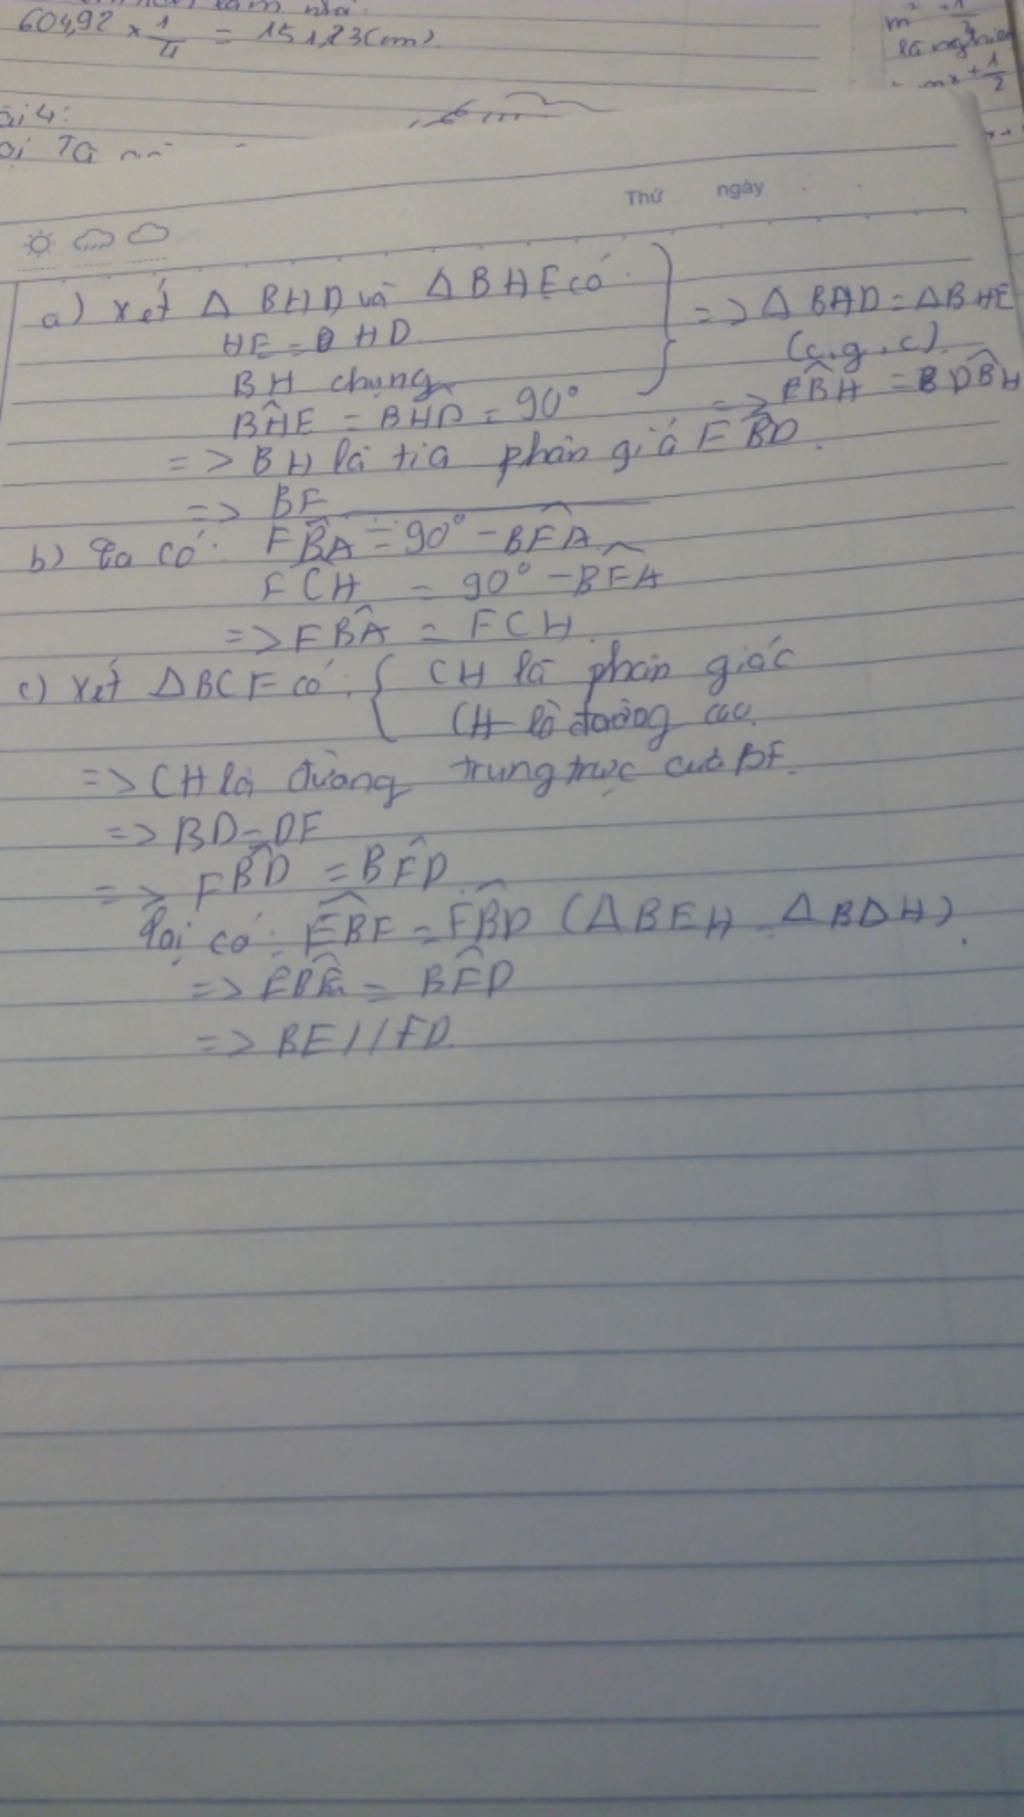 604,92 × 1/4 = 151,23(m).
Thứ ngày
a) xét Δ BHD và Δ BHE có
HE = HD
BH chung
BĤE = BĤD = 90°
=> Δ BHD = Δ BHE
(c.g.c)
=> EB̂H = DB̂H
=> BH là tia phân giá EB̂D.
=> BF
b) Ta có: FB̂A = 90° - BF̂A
FCH = 90° - BF̂A
=> FB̂A = FCH.
c) xét ΔBCF có: { CH là phân giác
CH là đường cao.
=> CH là đường trung trực của BF.
=> BD = DF
=> FB̂D = BF̂D
lại có: EB̂F = FB̂D (ΔBEH = ΔBDH).
=> = BF̂D
=> BE // FD.